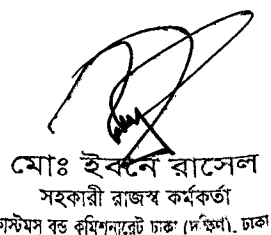 মোঃ ইবনে রাসেল
সহকারী রাজস্ব কর্মকর্তা
কাস্টমস বন্ড কমিশনারেট ঢাকা (দক্ষিণ), ঢাকা